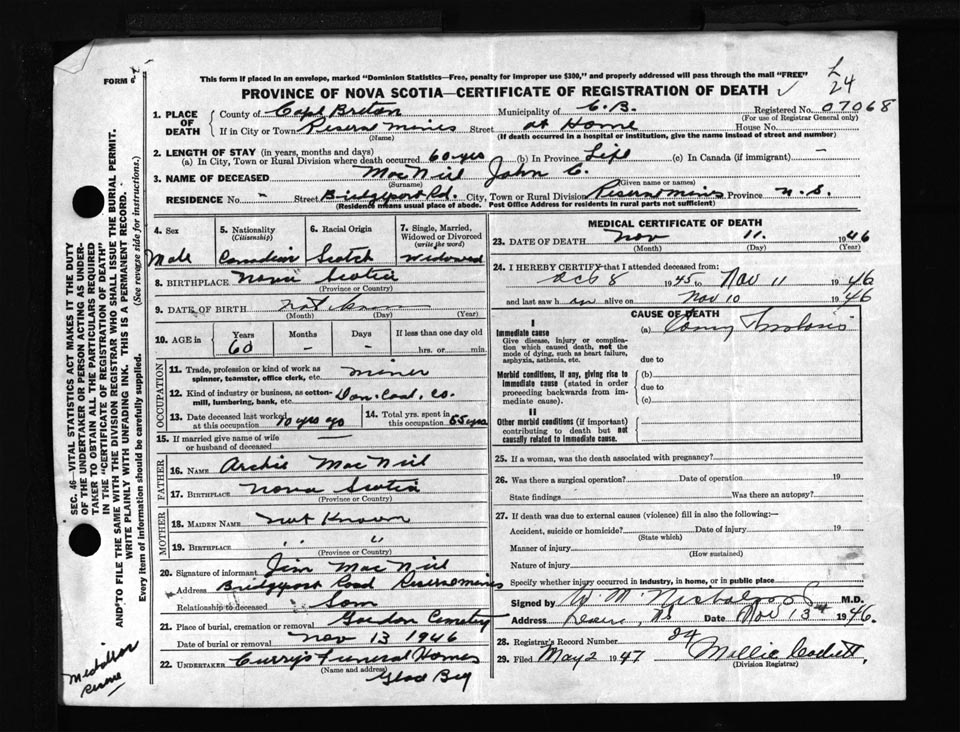 24
FORM
This form if placed in an envelope, marked "Dominion Statistics—Free, penalty for improper use $300," and properly addressed will pass through the mail "FREE"
PROVINCE OF NOVA SCOTIA—CERTIFICATE OF REGISTRATION OF DEATH
1. PLACE OF DEATH
County of Cape Breton Municipality of C.B. Registered No. 07068
(For use of Registrar General only)
If in City or Town Reserve Mines Street at Home House No.
(Name) (If death occurred in a hospital or institution, give the name instead of street and number)
2. LENGTH OF STAY (in years, months and days)
(a) In City, Town or Rural Division where death occurred 60 yrs (b) In Province Life (c) In Canada (if immigrant) —
3. NAME OF DECEASED MacNeil John C.
(Surname) (Given name or names)
RESIDENCE No. - Street Bridgeport Rd. City, Town or Rural Division Reserve Mines Province N.S.
(Residence means usual place of abode. Post Office Address for residents in rural parts not sufficient)
4. Sex Male
5. Nationality (Citizenship) Canadian
6. Racial Origin Scotch
7. Single, Married, Widowed or Divorced (write the word) Widowed
8. BIRTHPLACE Nova Scotia
(Province or Country)
9. DATE OF BIRTH not known
(Month) (Day) (Year)
10. AGE in Years 60 Months - Days - If less than one day old hrs. or min.
OCCUPATION
11. Trade, profession or kind of work as spinner, teamster, office clerk, etc. miner
12. Kind of industry or business, as cotton-mill, lumbering, bank, etc. Dom. Coal, Co.
13. Date deceased last worked at this occupation 10 yrs ago
14. Total yrs. spent in this occupation 55 yrs
15. If married give name of wife or husband of deceased —
FATHER
16. NAME Archie MacNeil
17. BIRTHPLACE Nova Scotia
(Province or Country)
MOTHER
18. MAIDEN NAME not Known
19. BIRTHPLACE " "
(Province or Country)
20. Signature of informant Jim MacNeil
Address Bridgeport Road Reserve Mines
Relationship to deceased Son
21. Place of burial, cremation or removal Gordon Cemetery
Date of burial or removal Nov 13 1946
22. UNDERTAKER Curry's Funeral Homes
(Name and address)
Glace Bay
MEDICAL CERTIFICATE OF DEATH
23. DATE OF DEATH Nov 11. 1946
(Month) (Day)
24. I HEREBY CERTIFY that I attended deceased from:
Oct 8 1945 to Nov 11 1946
and last saw h im alive on Nov 10 1946
CAUSE OF DEATH
I
Immediate cause
Give disease, injury or complication which caused death, not the mode of dying, such as heart failure, asphyxia, asthenia, etc.
(a)
due to
Morbid conditions, if any, giving rise to immediate cause (stated in order proceeding backwards from immediate cause).
(b)
due to
(c)
II
Other morbid conditions (if important) contributing to death but not causally related to immediate cause.
25. If a woman, was the death associated with pregnancy?
26. Was there a surgical operation? Date of operation 19
State findings Was there an autopsy?
27. If death was due to external causes (violence) fill in also the following:—
Accident, suicide or homicide? Date of injury 19
(State which)
Manner of injury
(How sustained)
Nature of injury
Specify whether injury occurred in industry, in home, or in public place
Signed by M.D.
Address Reserve, NS Date Nov 13th 1946.
28. Registrar's Record Number 24
29. Filed May 2 1947 Mollie
(Division Registrar)
SEC. 46—VITAL STATISTICS ACT MAKES IT THE DUTY OF THE UNDERTAKER OR PERSON ACTING AS UNDERTAKER TO OBTAIN ALL THE PARTICULARS REQUIRED IN THE "CERTIFICATE OF REGISTRATION OF DEATH" AND TO FILE THE SAME WITH THE DIVISION REGISTRAR WHO SHALL ISSUE THE BURIAL PERMIT.
WRITE PLAINLY WITH UNFADING INK. THIS IS A PERMANENT RECORD.
Every item of information should be carefully supplied. (See reverse side for instructions.)